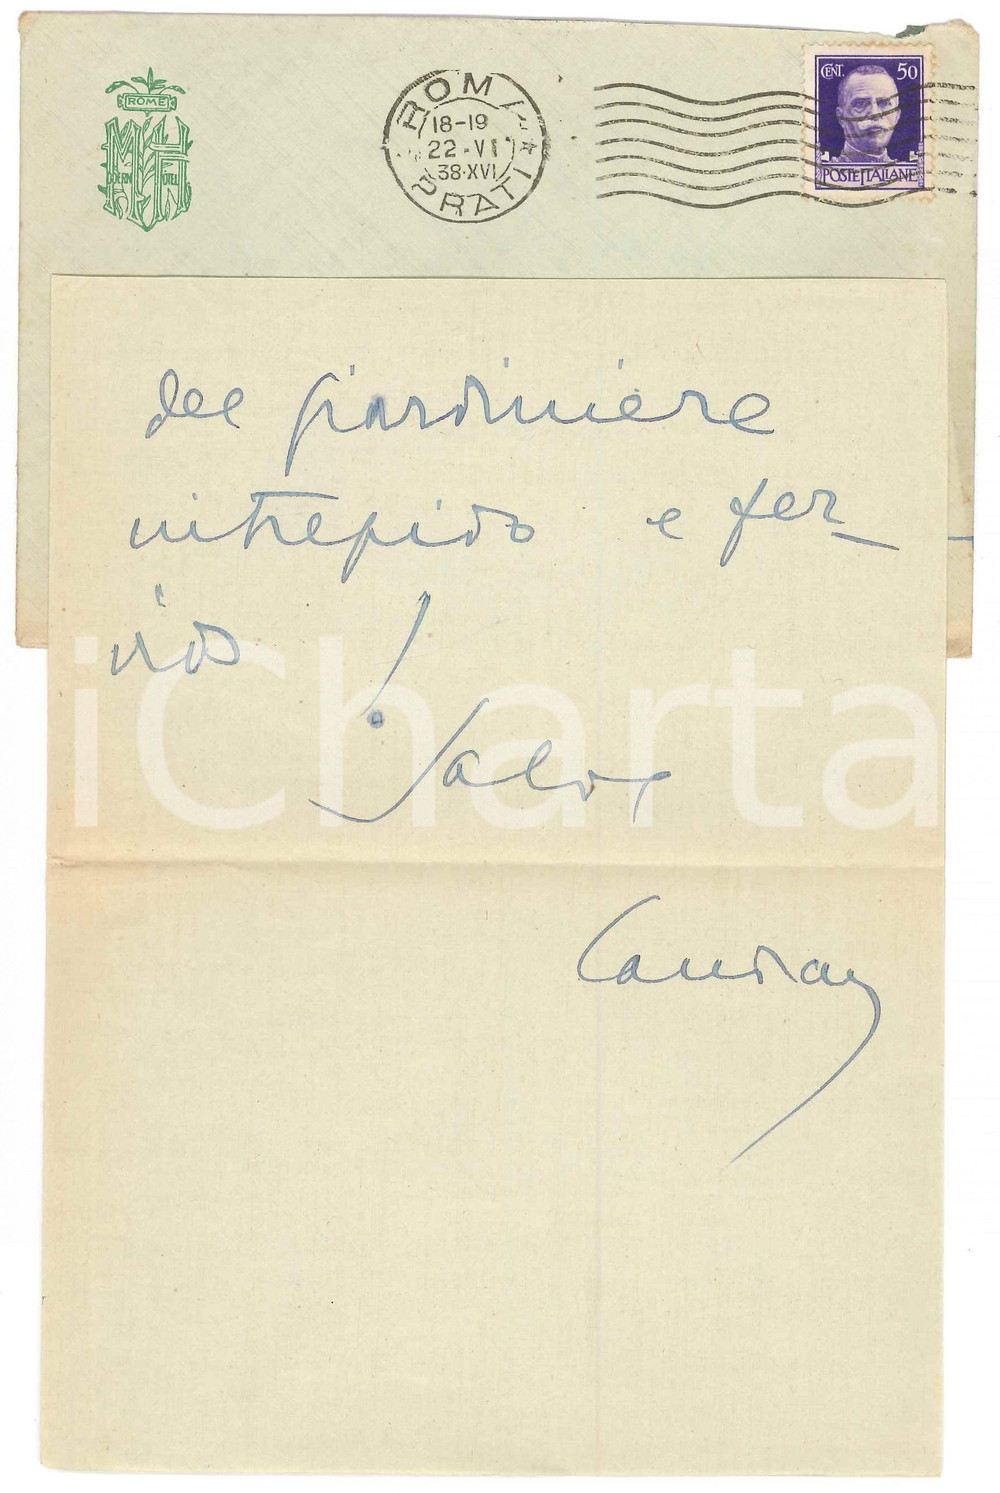 ROME
MODERN HOTEL
ROMA
18-19
22·VI
38·XVI
PRATI
CENT. 50
POSTE ITALIANE
del giardiniere
intrepido e fer-
vido
Salve
iCharta